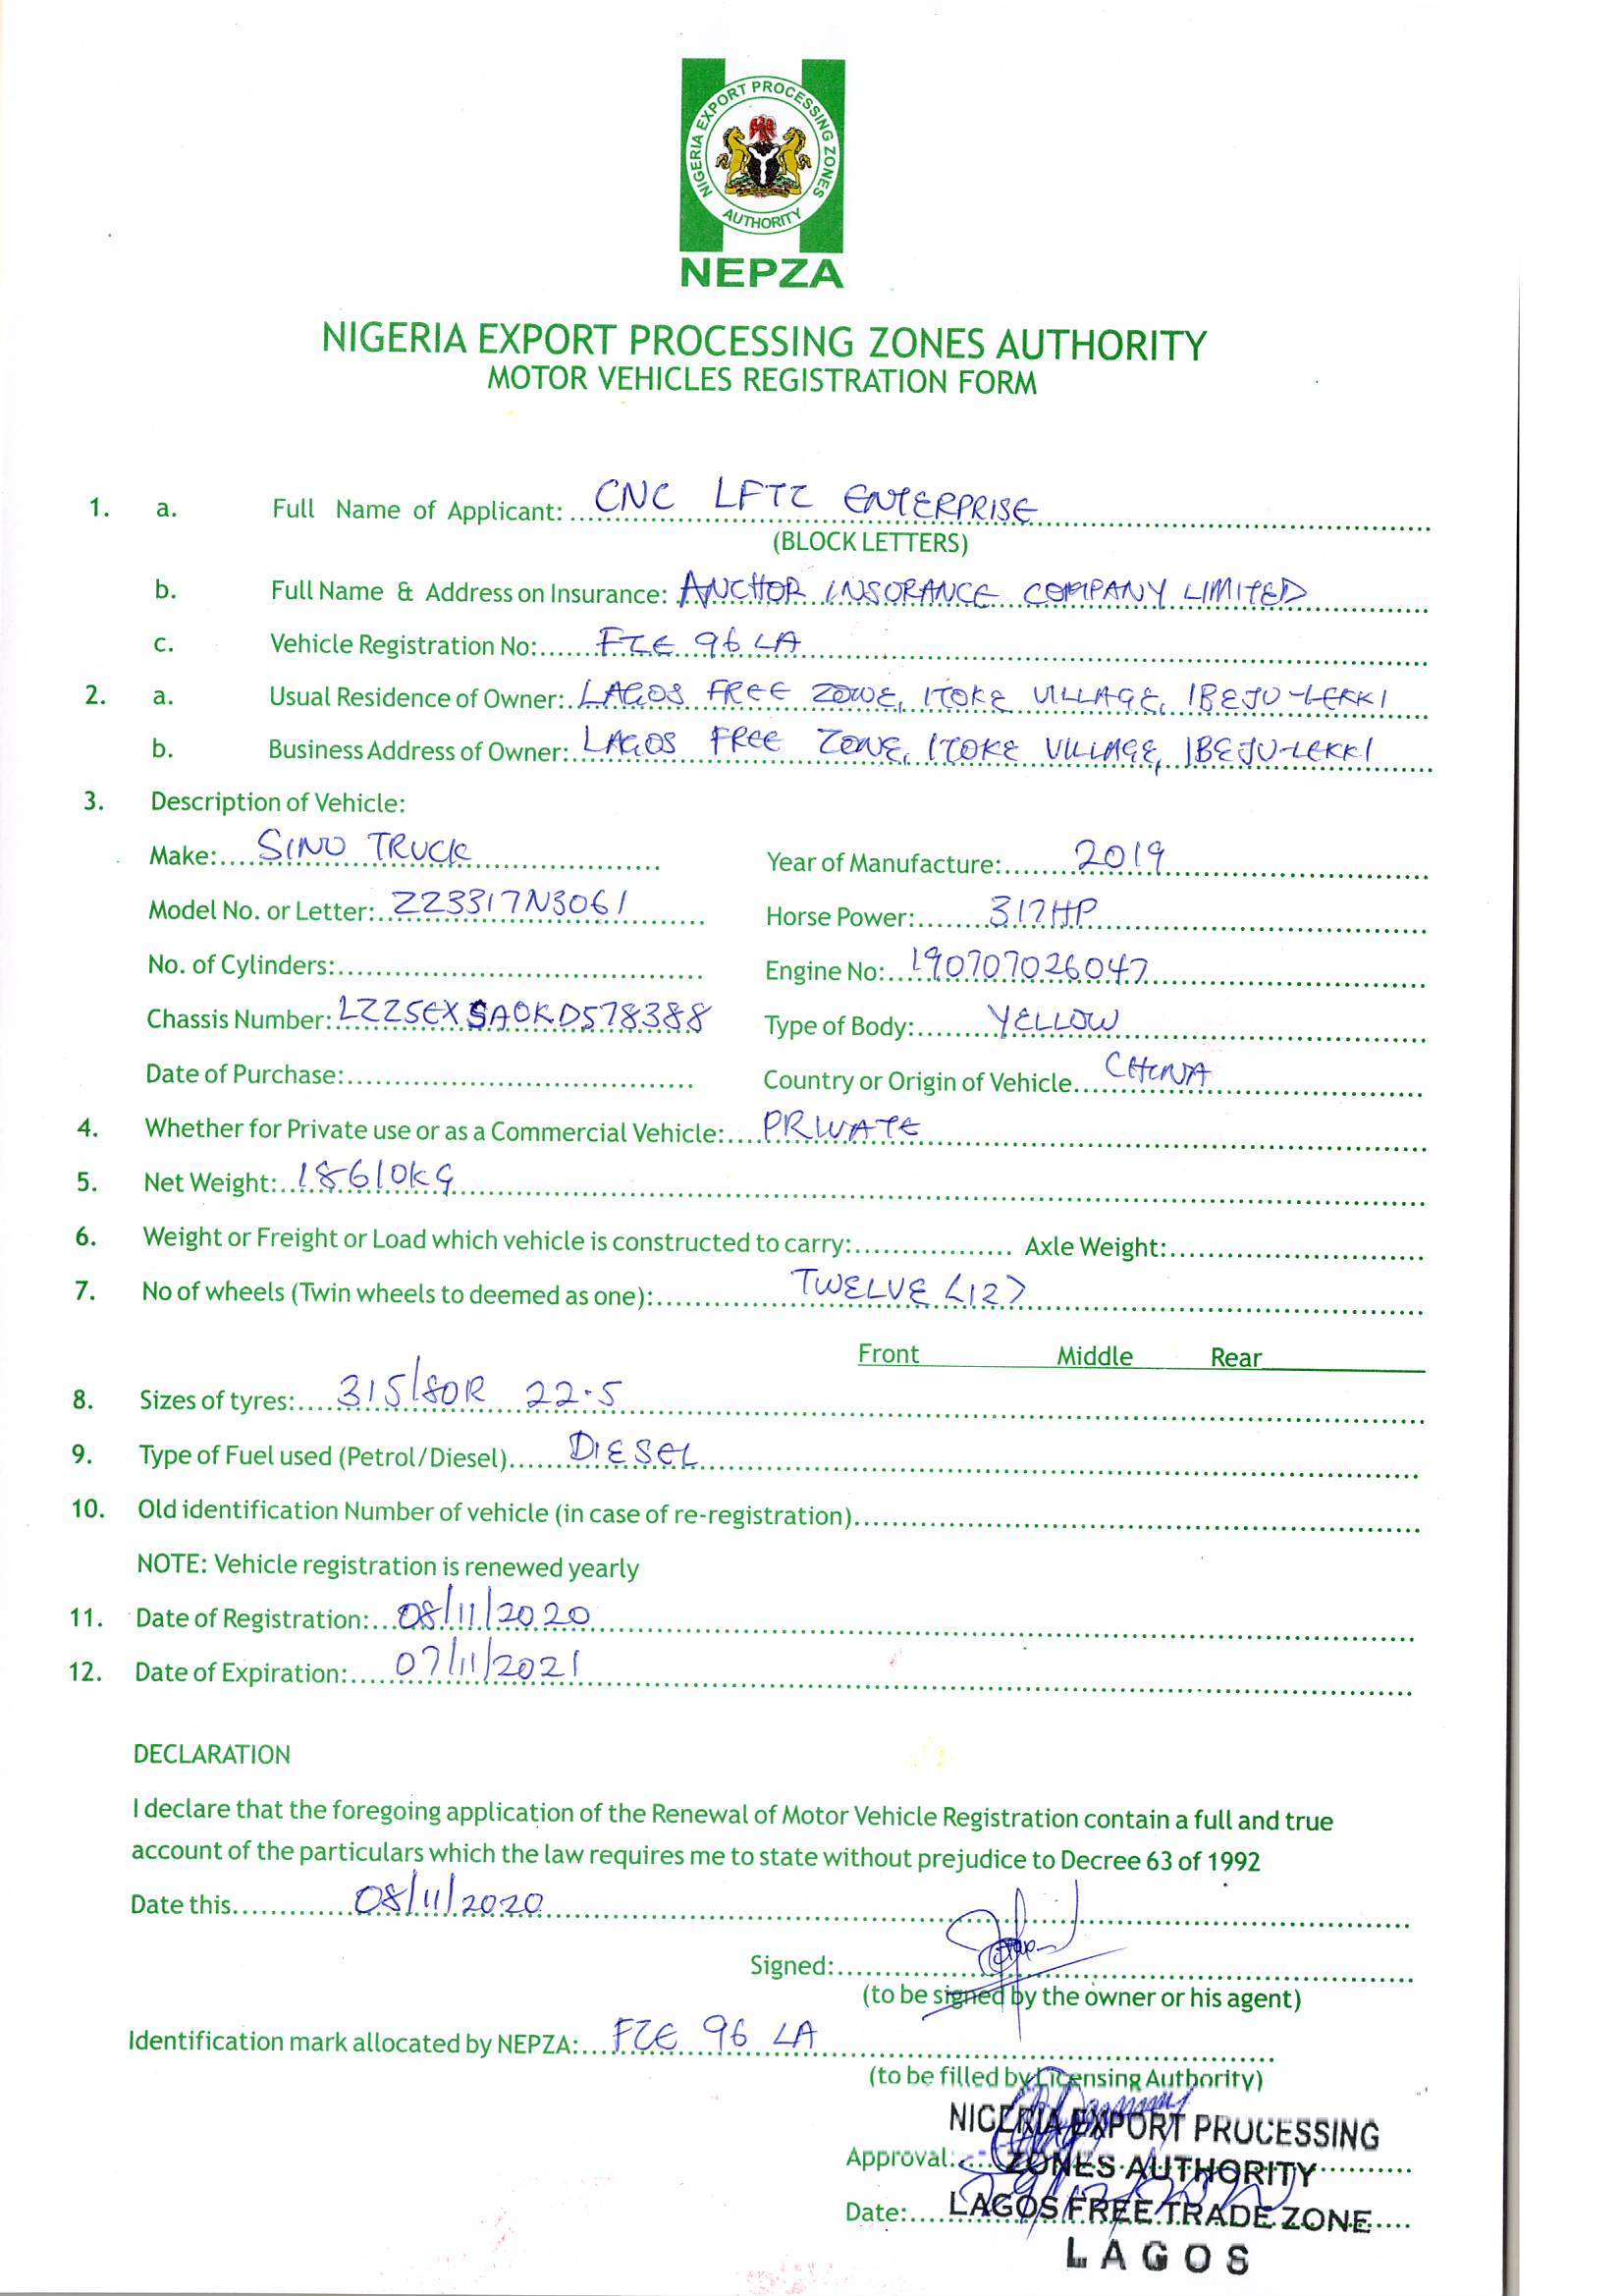 NIGERIA EXPORT PROCESSING ZONES
AUTHORITY
NEPZA
NIGERIA EXPORT PROCESSING ZONES AUTHORITY
MOTOR VEHICLES REGISTRATION FORM
1. a. Full Name of Applicant: CNC LFTZ ENTERPRISE
(BLOCK LETTERS)
b. Full Name & Address on Insurance: ANCHOR INSORANCE COMPANY LIMITED
c. Vehicle Registration No: FZE 96 LA
2. a. Usual Residence of Owner: LAGOS FREE ZONE, ITOKE VILLAGE, IBEJU-LEKKI
b. Business Address of Owner: LAGOS FREE ZONE, ITOKE VILLAGE, IBEJU-LEKKI
3. Description of Vehicle:
Make: SINO TRUCK Year of Manufacture: 2019
Model No. or Letter: ZZ3317N3061 Horse Power: 317HP
No. of Cylinders: Engine No: 190707026047
Chassis Number: LZZ5EXSA0KD578388 Type of Body: YELLOW
Date of Purchase: Country or Origin of Vehicle CHINA
4. Whether for Private use or as a Commercial Vehicle: PRIVATE
5. Net Weight: 18610KG
6. Weight or Freight or Load which vehicle is constructed to carry: Axle Weight:
7. No of wheels (Twin wheels to deemed as one): TWELVE (12)
Front Middle Rear
8. Sizes of tyres: 315/80R 22.5
9. Type of Fuel used (Petrol/Diesel) DIESEL
10. Old identification Number of vehicle (in case of re-registration)
NOTE: Vehicle registration is renewed yearly
11. Date of Registration: 08/11/2020
12. Date of Expiration: 07/11/2021
DECLARATION
I declare that the foregoing application of the Renewal of Motor Vehicle Registration contain a full and true
account of the particulars which the law requires me to state without prejudice to Decree 63 of 1992
Date this 08/11/2020
Signed:
(to be signed by the owner or his agent)
Identification mark allocated by NEPZA: FZE 96 LA
(to be filled by Licensing Authority)
NIGERIA EXPORT PROCESSING
Approval: ZONES AUTHORITY
Date: LAGOS FREE TRADE ZONE
LAGOS